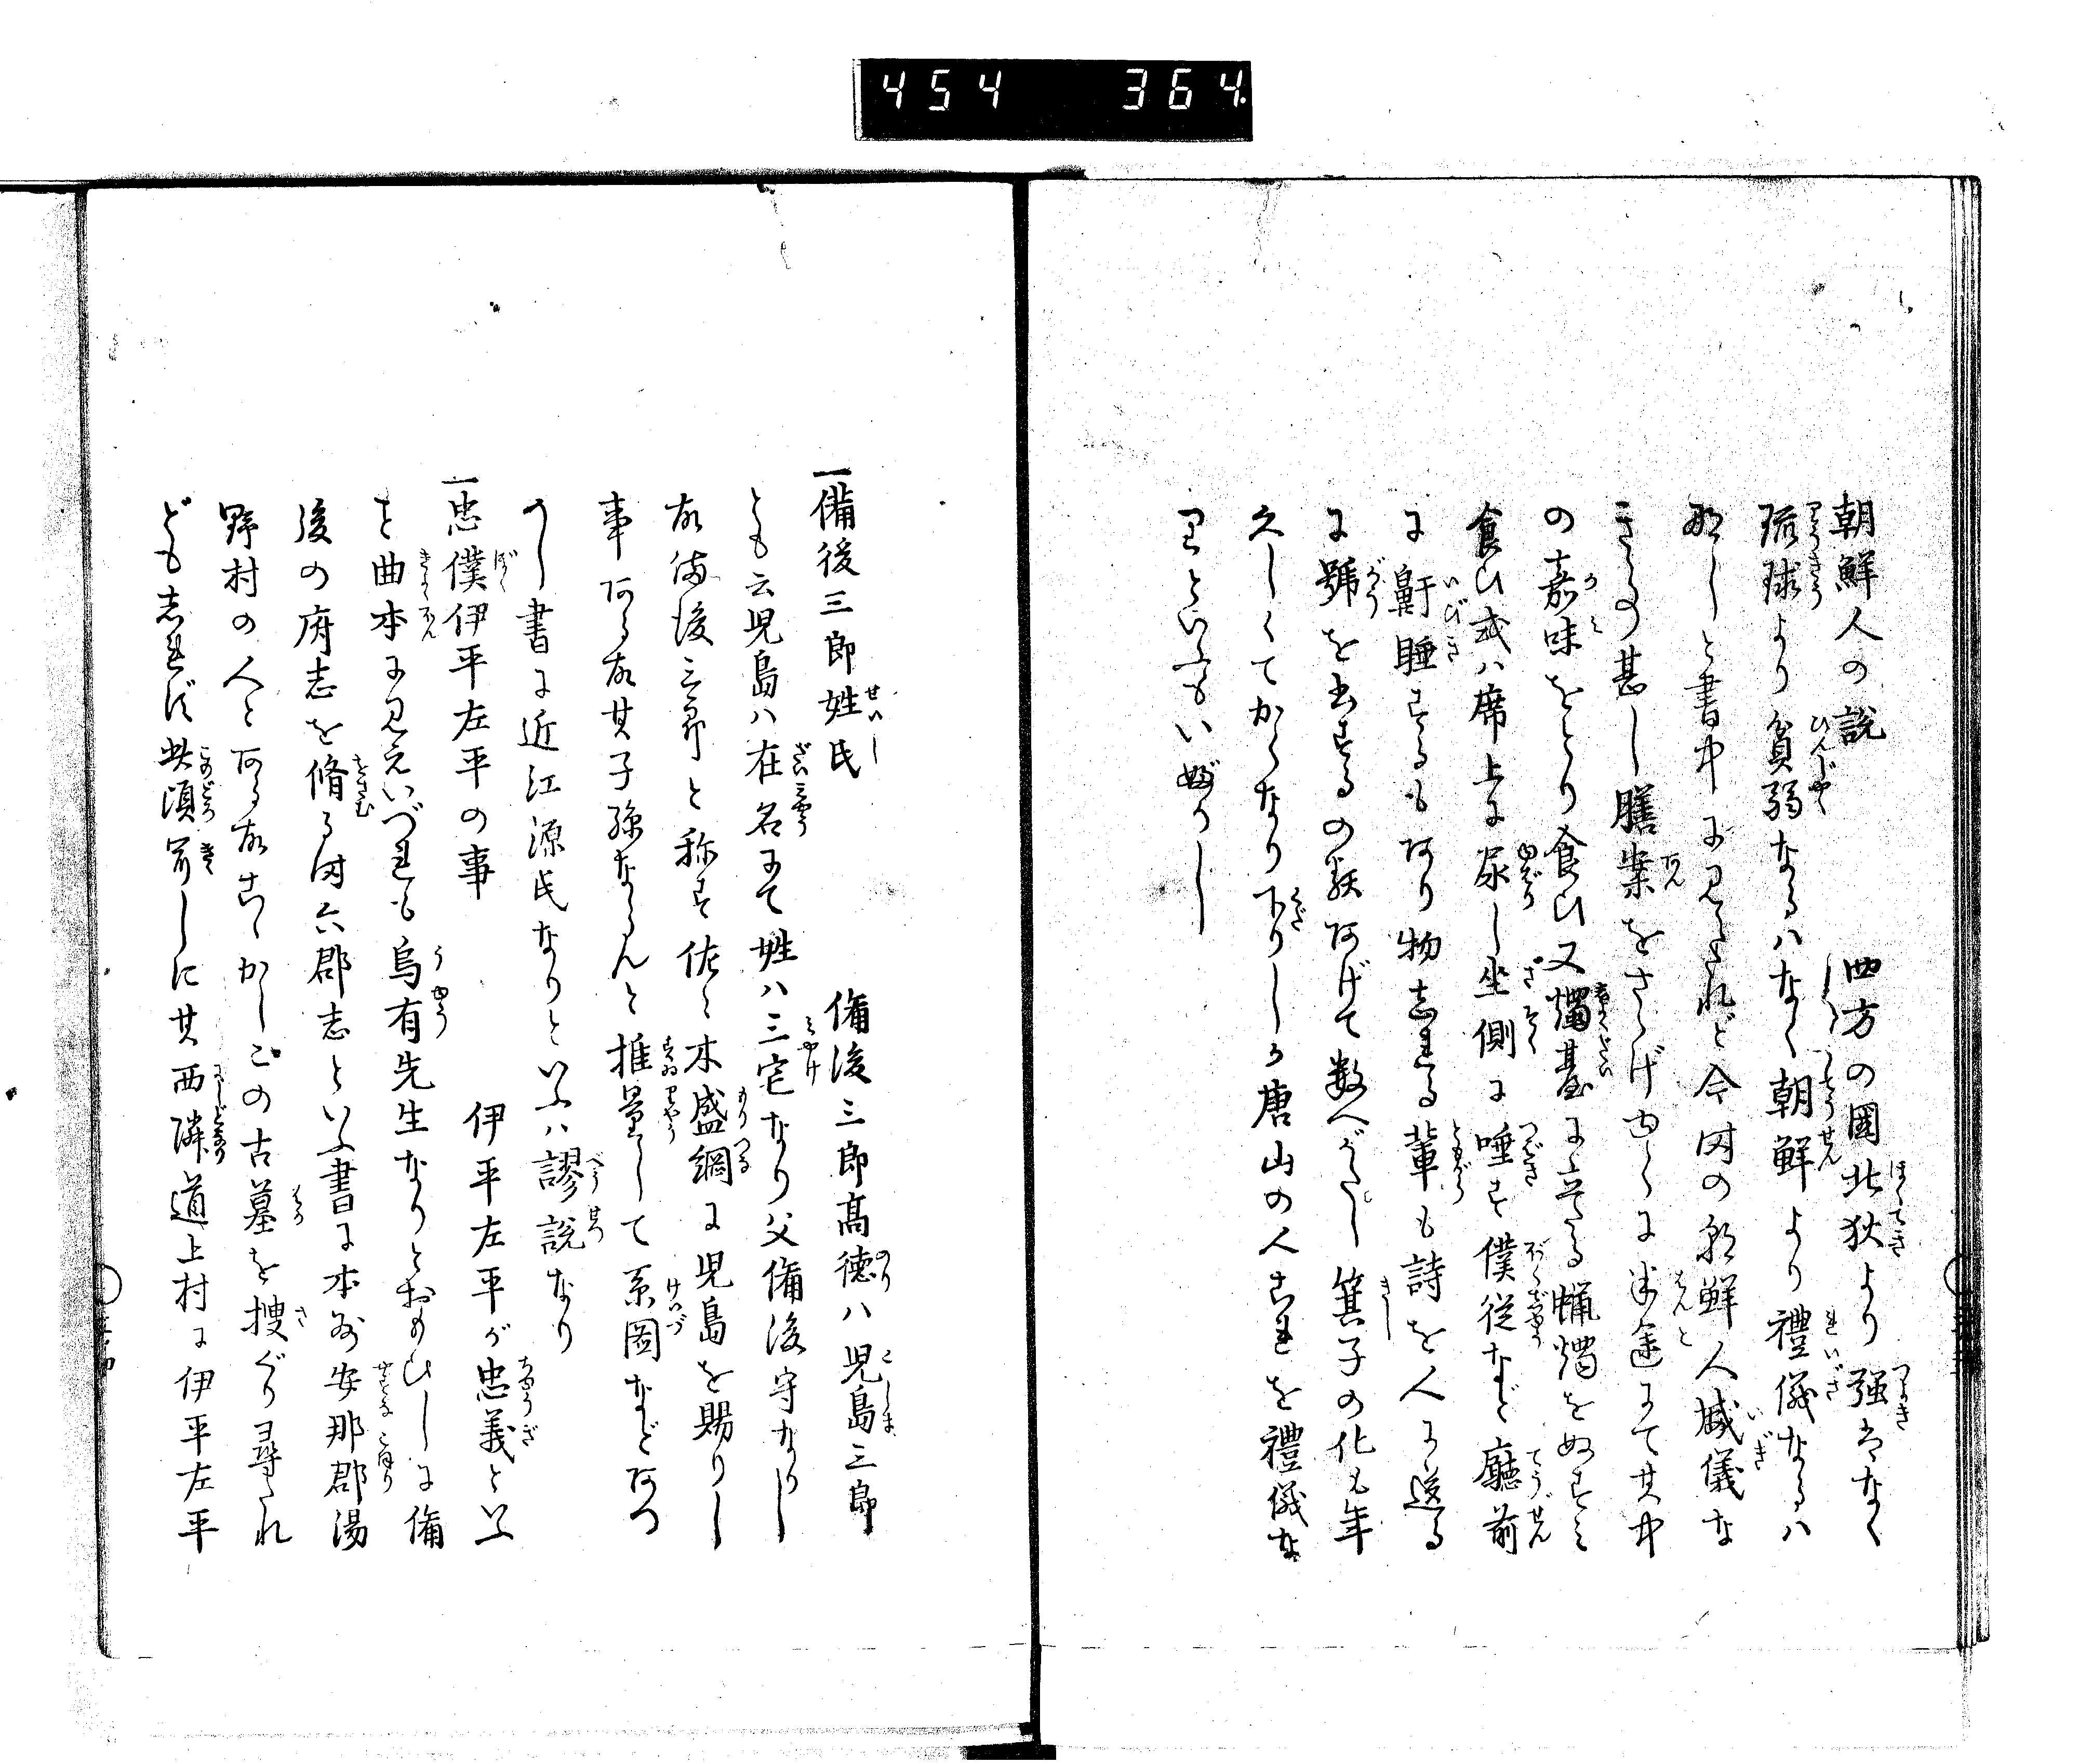 454 364
朝鮮人の説　四方の國北狄より强きはなく
琉球より貧弱なるハなく朝鮮より禮儀なるハ
那しと書中に見えたれど今時の朝鮮人威儀な
きもの甚し膳案をさゝげゆくに半途にて其中
の嘉味をとり食ひ又燭臺に立たる蝋燭をぬすミ
食ひ或ハ席上に尿し坐側に唾す僕従など廳前
に鼾睡するもあり物しれる輩も詩を人に送る
に號を書するの類あげて数へがたし箕子の化も年
久しくてかくなり下りしか唐山の人これを禮儀な
りといふもいぶかし
一備後三郎姓氏　備後三郎高徳ハ児島三郎
とも云児島ハ在名にて姓ハ三宅なり父備後守なりし
故備後三郎と称す佐々木盛綱に児島を賜りし
事ある故其子孫ならんと推量して系圖などあつ
めし書に近江源氏なりといふハ謬説なり
一忠僕伊平左平の事　伊平左平が忠義といふ
を曲本に見えいづれも烏有先生なりとおもひしに備
後の府志を脩る時六郡志といふ書に本州安那郡湯
野村の人とある故あしこかしこの古墓を捜ぐり尋たれ
どもしれず此頃聞しに其西隣道上村に伊平左平